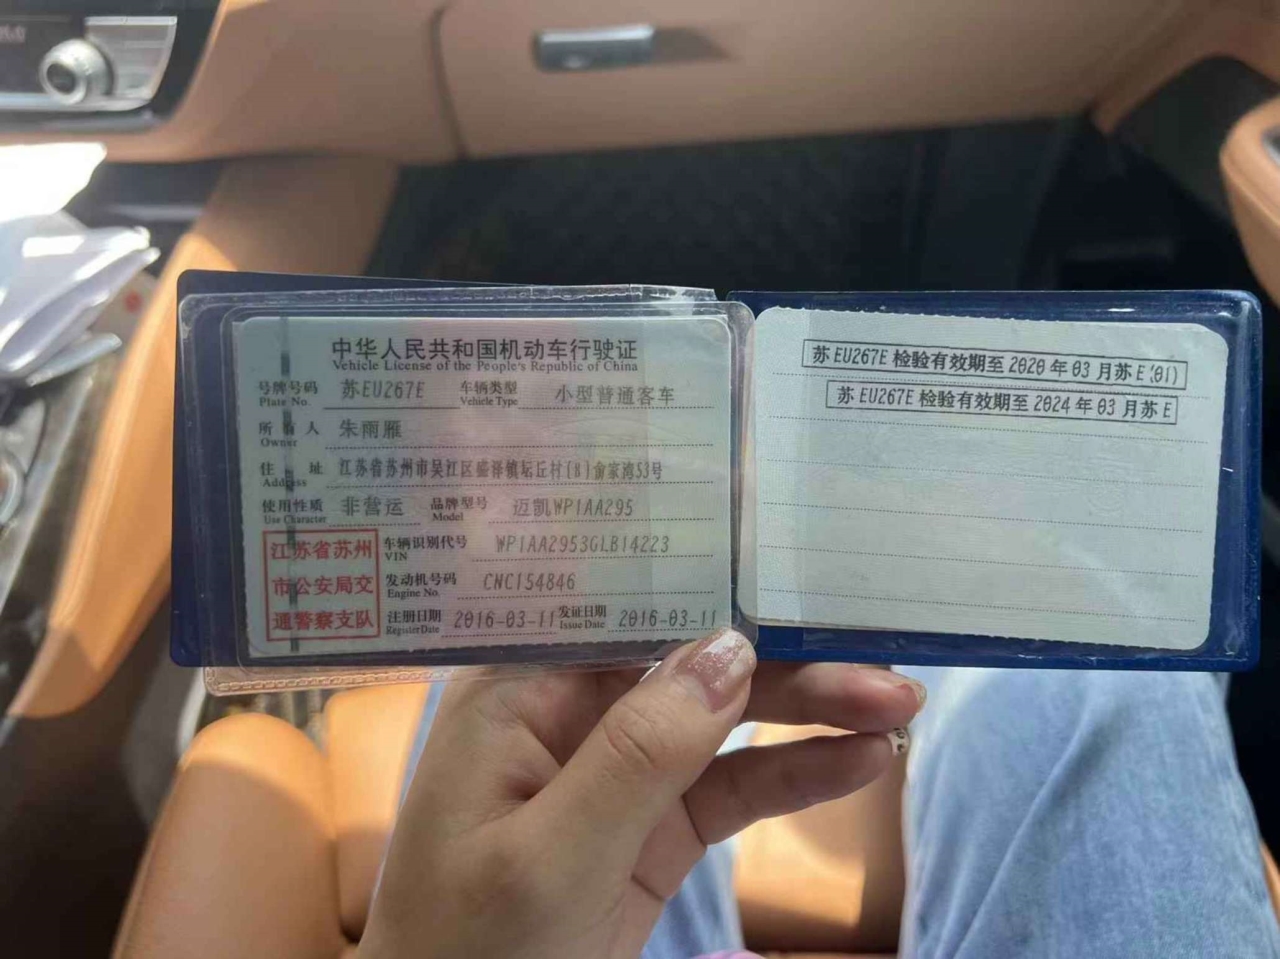 中华人民共和国机动车行驶证
Vehicle License of the People's Republic of China
号牌号码 苏EU267E 车辆类型 小型普通客车
Plate No. Vehicle Type
所有人 朱雨雁
Owner
住址 江苏省苏州市吴江区盛泽镇坛丘村(8)俞家湾53号
Address
使用性质 非营运 品牌型号 迈凯WP1AA295
Use Character Model
江苏省苏州
市公安局交
通警察支队
车辆识别代号 WP1AA2953GLB14223
VIN
发动机号码 CNC154846
Engine No.
注册日期 2016-03-11 发证日期 2016-03-11
Register Date Issue Date
苏EU267E 检验有效期至 2020 年 03 月苏E(01)
苏 EU267E 检验有效期至 2024 年 03 月苏 E